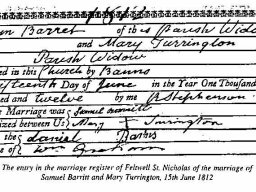 Barret of this Parish Widow
and Mary Turrington
Parish Widow
ed in this Church by Banns
fteenth Day of June in the Year One Thousand
ed and twelve by me R Stephenson
Marriage was Samuel
ized between Us Mary Turrington
the daniel
of
The entry in the marriage register of Feltwell St. Nicholas of the marriage of
Samuel Barritt and Mary Turrington, 15th June 1812